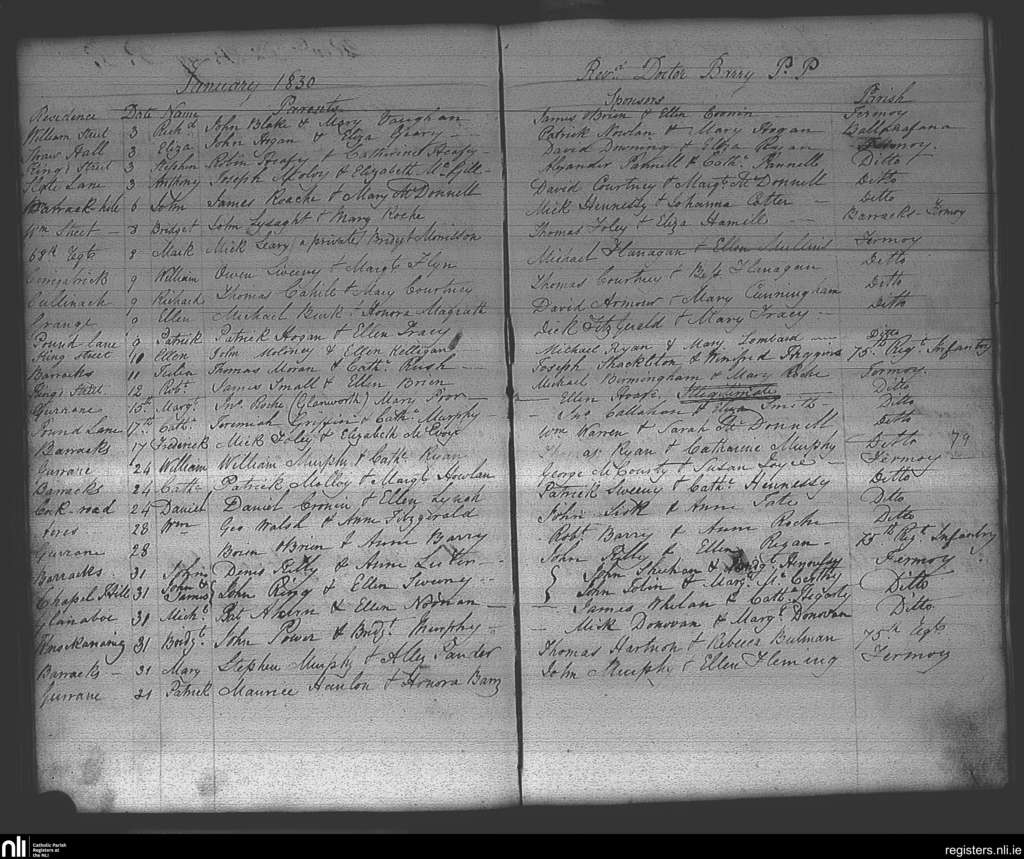 January 1830 Revd. Doctor Barry P. P
Residence Date Name Parents Sponsors Parish
William Street 3 Richd John Blake & Mary Vaughan James O'Brien & Ellen Cronin Fermoy
Straw Hall 3 Eliza John Hogan & Eliza Geary Patrick Nowlan & Mary Hogan
Kings Street 3 Stephen Robin Heafy & Catherine Heafy David Downing & Eliza Ryan Fermoy
Lane 3 Anthony Joseph & Elizabeth Alexander Pannell & Cathe. Pannell Ditto
6 John James Roache & Mary McDonnell David Courtney & Margt. McDonnell Ditto
Wm Street 8 Bridget John Lysaght & Mary Roche Mick Hennessy & Johanna Cotter Ditto
68th Regt 8 Mark Mick Leary (a private) Bridget Morrisson Thomas Foley & Eliza Hamill Barracks Fermoy
9 William Owen Sweeny & Margt. Flyn Michael Flanagan & Ellen Mullins Fermoy
Cullinagh 9 Richard Thomas Cahill & Mary Courtney Thomas Courtney & Flanagan Ditto
Grange 9 Ellen Michael & Honora Magrath David Armour & Mary Cunningham Ditto
Pound lane 9 Patrick Patrick Hogan & Ellen Tracy Dick Fitzgerald & Mary Tracy Ditto
King Street 10 Ellen John Moloney & Ellen Kelligan Michael Ryan & Mary Lombard Ditto
Barracks 11 Thomas Moran & Cathe. Rush Joseph Shackleton & Winifred Higgins 75th Regt. Infantry
Kings Street 12 Robt. James Small & Ellen Brien Michael Birmingham & Mary Roche Fermoy
Gurrane 15th Margt. Jno. Roche (Glanworth) Mary Ellen Roche Illegitimate Ditto
Pound Lane 17th Cathe. Jeremiah Griffin & Cathe. Murphy Jno. Callahan & Eliza Smith Ditto
Barracks 17 Frederick Mick Foley & Elizabeth McEvoy Wm Warren & Sarah McDonnell Ditto
Gurrane 24 William William Murphy & Cathe. Ryan Thomas Ryan & Catharine Murphy Ditto 79
Barracks 24 Cathe. Patrick Molloy & Margt. Howlan George McCourty & Susan Joyce Fermoy
Cork-road 24 Daniel Daniel Cronin & Ellen Lynch Patrick Sweeny & Cathe. Hennessy Ditto
28 Wm Geo Walsh & Anne Fitzgerald John Sisk & Anne Ditto
Gurrane 28 O'Brien & Anne Barry Robt. Barry & Anne Roche Ditto
Barracks 31 John Denis Kelly & Anne John Kelly & Ellen Regan 75th Regt. Infantry
Chapel Hill 31 John & James } John Ring & Ellen Sweeny { John Sheehan & Bridgt. / John Tobin & Margt. McCarthy Fermoy
Glanaboe 30 Michl. Pat Ahern & Ellen Noonan James Whelan & Cathe. Hegarty Ditto
Knockananig 31 Bridgt. John Power & Bridgt. Murphy Mick Donovan & Margt. Donovan Ditto
Barracks 31 Mary Stephen Murphy & Alley Thomas Hartnon & Rebeca Bulman 75th Regt
Gurrane 31 Patrick Maurice Hanlon & Honora Barry John Murphy & Ellen Fleming Fermoy
nli Catholic Parish Registers at the NLI registers.nli.ie